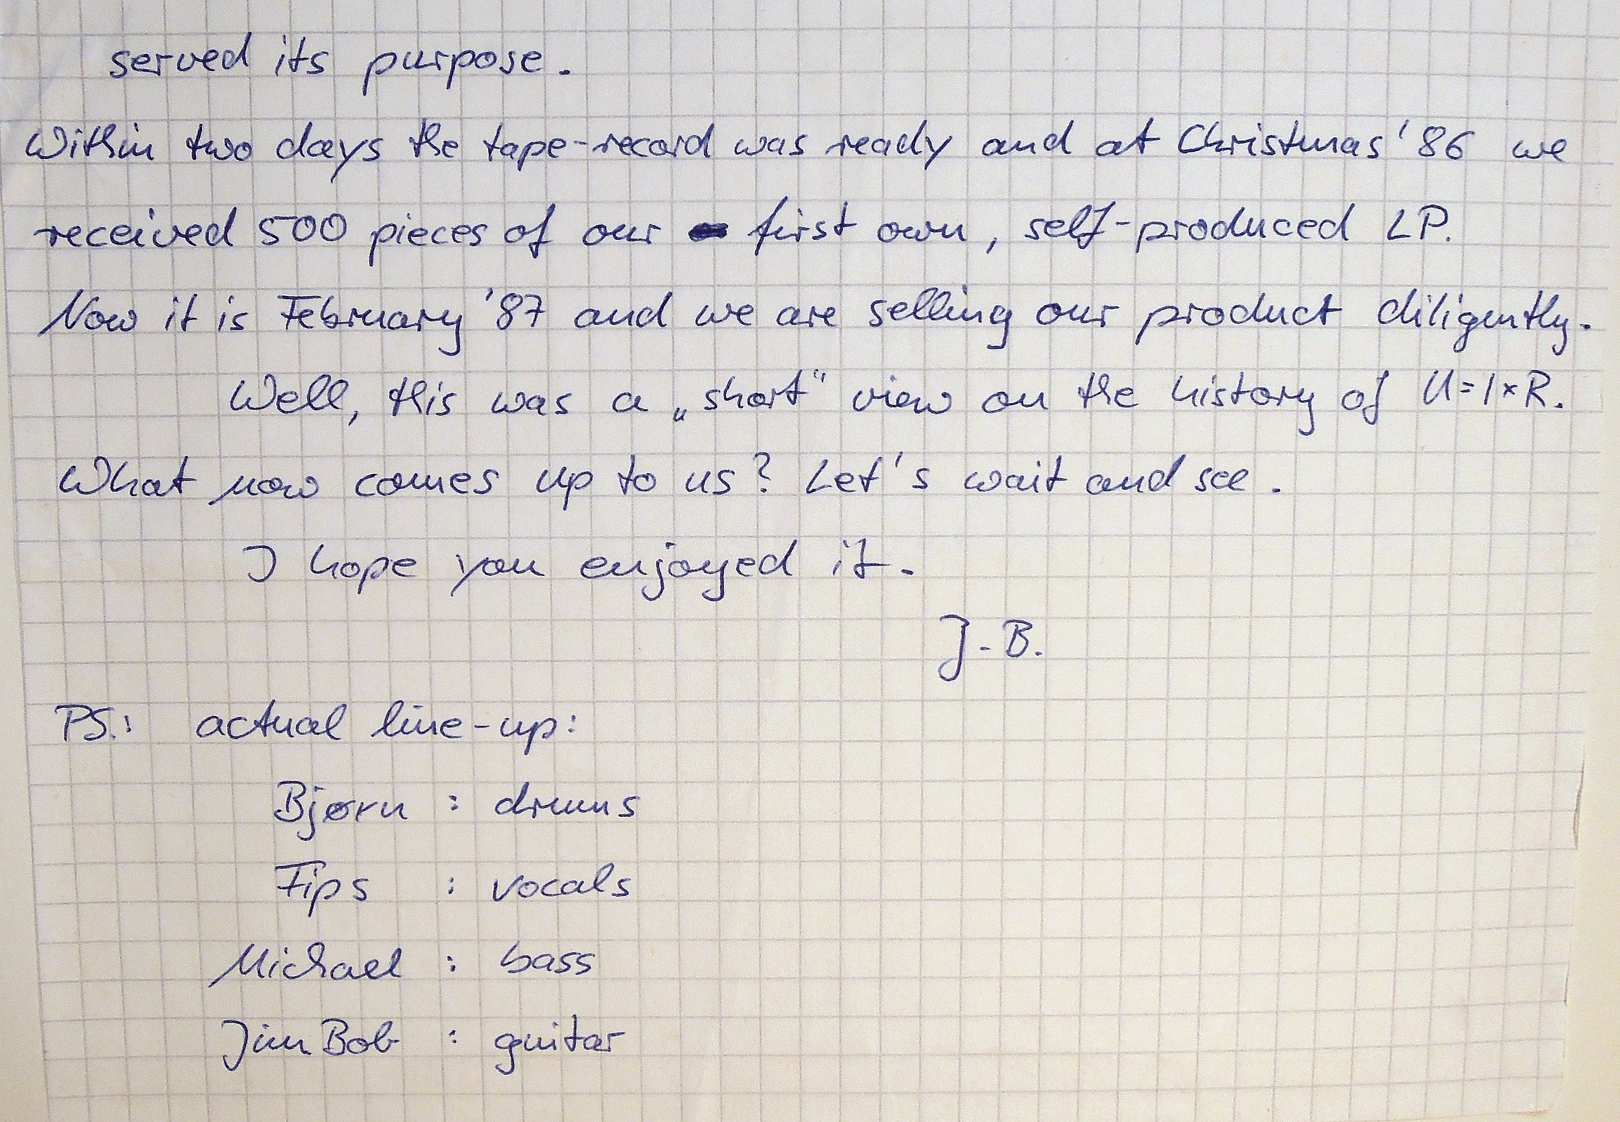 served its purpose.
Within two days the tape-record was ready and at Christmas '86 we
received 500 pieces of our first own, self-produced LP.
Now it is February '87 and we are selling our product diligently.
Well, this was a „short" view on the history of U=I×R.
What now comes up to us? Let's wait and see.
I hope you enjoyed it.
J.B.
PS.: actual line-up:
Bjørn : drums
Fips : vocals
Michael : bass
Jim Bob : guitar